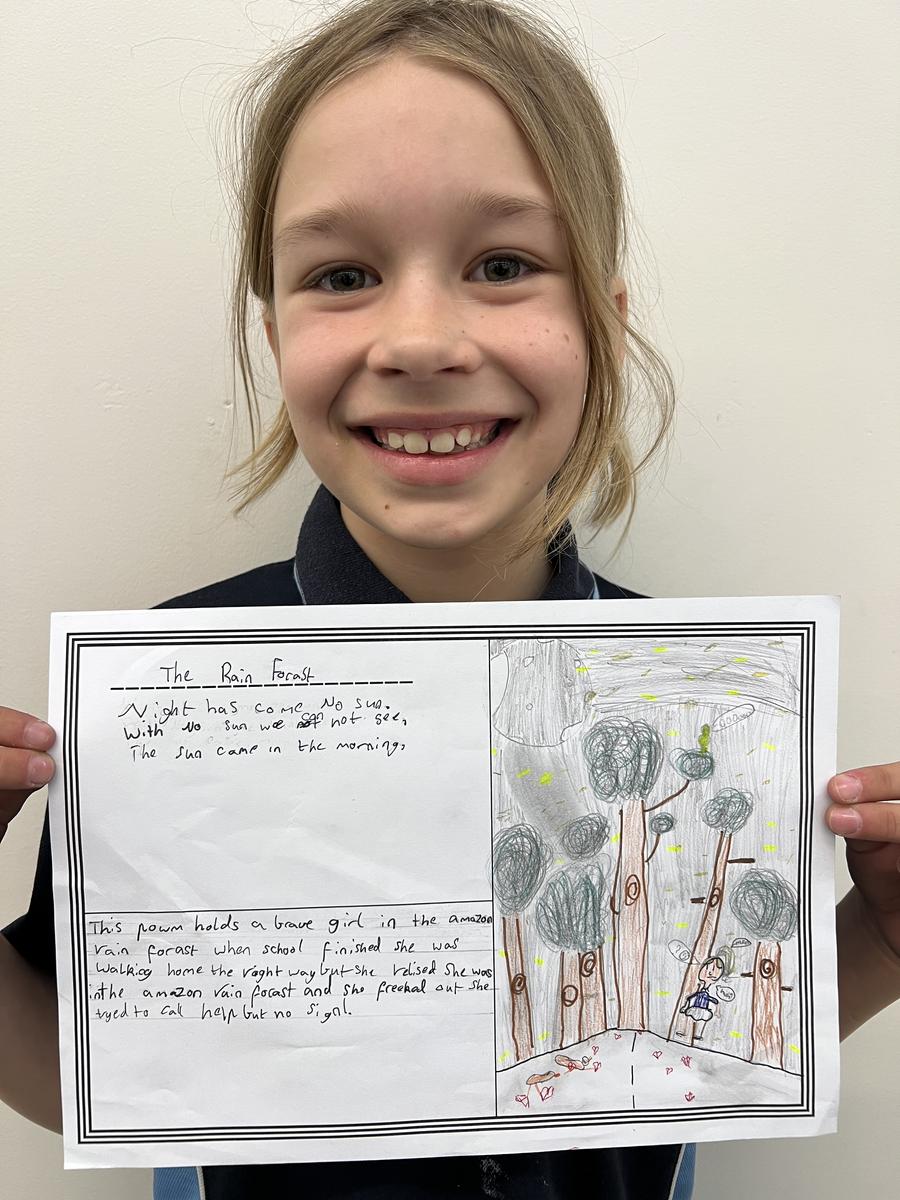 The Rain Forast
Night has come No sun.
With No sun we not see,
The sun came in the morning,
This powm holds a brave girl in the amazon
rain forcast when school finished she was
walking home the raght way but she relised she was
in the amazon rain forcast and she freekal out she
tryed to call help but no signl.